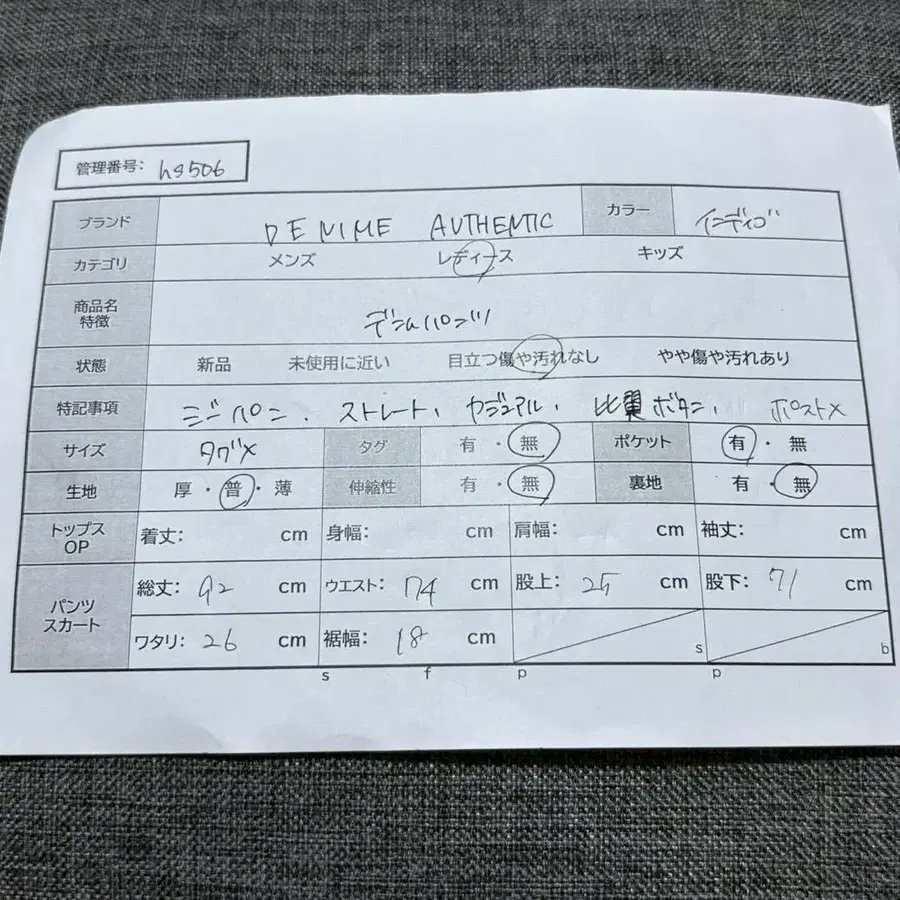 管理番号: hg506
ブランド DENIME AUTHENTIC カラー インディゴ
カテゴリ メンズ レディース キッズ
商品名 特徴 デニムパンツ
状態 新品 未使用に近い 目立つ傷や汚れなし やや傷や汚れあり
特記事項 ジーパン、ストレート、カジュアル、比翼ボタン、ポスト×
サイズ タグ× タグ 有・無 ポケット 有・無
生地 厚・普・薄 伸縮性 有・無 裏地 有・無
トップス OP 着丈: cm 身幅: cm 肩幅: cm 袖丈: cm
パンツ スカート 総丈: 92 cm ウエスト: 74 cm 股上: 25 cm 股下: 71 cm
ワタリ: 26 cm 裾幅: 18 cm s b
s f p p